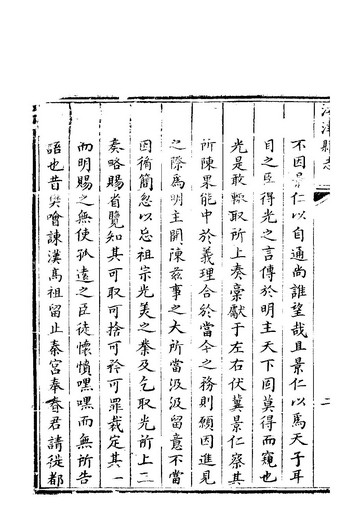 江津縣志
二
不因景仁以自通尚誰望哉且景仁以爲天子耳
目之臣得光之言傳於明主天下固莫得而窺也
光是敢輒取所上奏稾獻于左右伏冀景仁察其
所陳果能中於義理合於當今之務則願因進見
之際爲明主開陳茲事之大所當汲汲留意不當
因循簡忽以忘祖宗光美之業及乞取光所上二
奏略賜省覽知其可取可捨可矜可罪裁定其一
而明賜之無使孤遠之臣徒懷憤嘿嘿而無所告
語也昔樊噲諫漢高祖留止秦宮奉春君請徙都